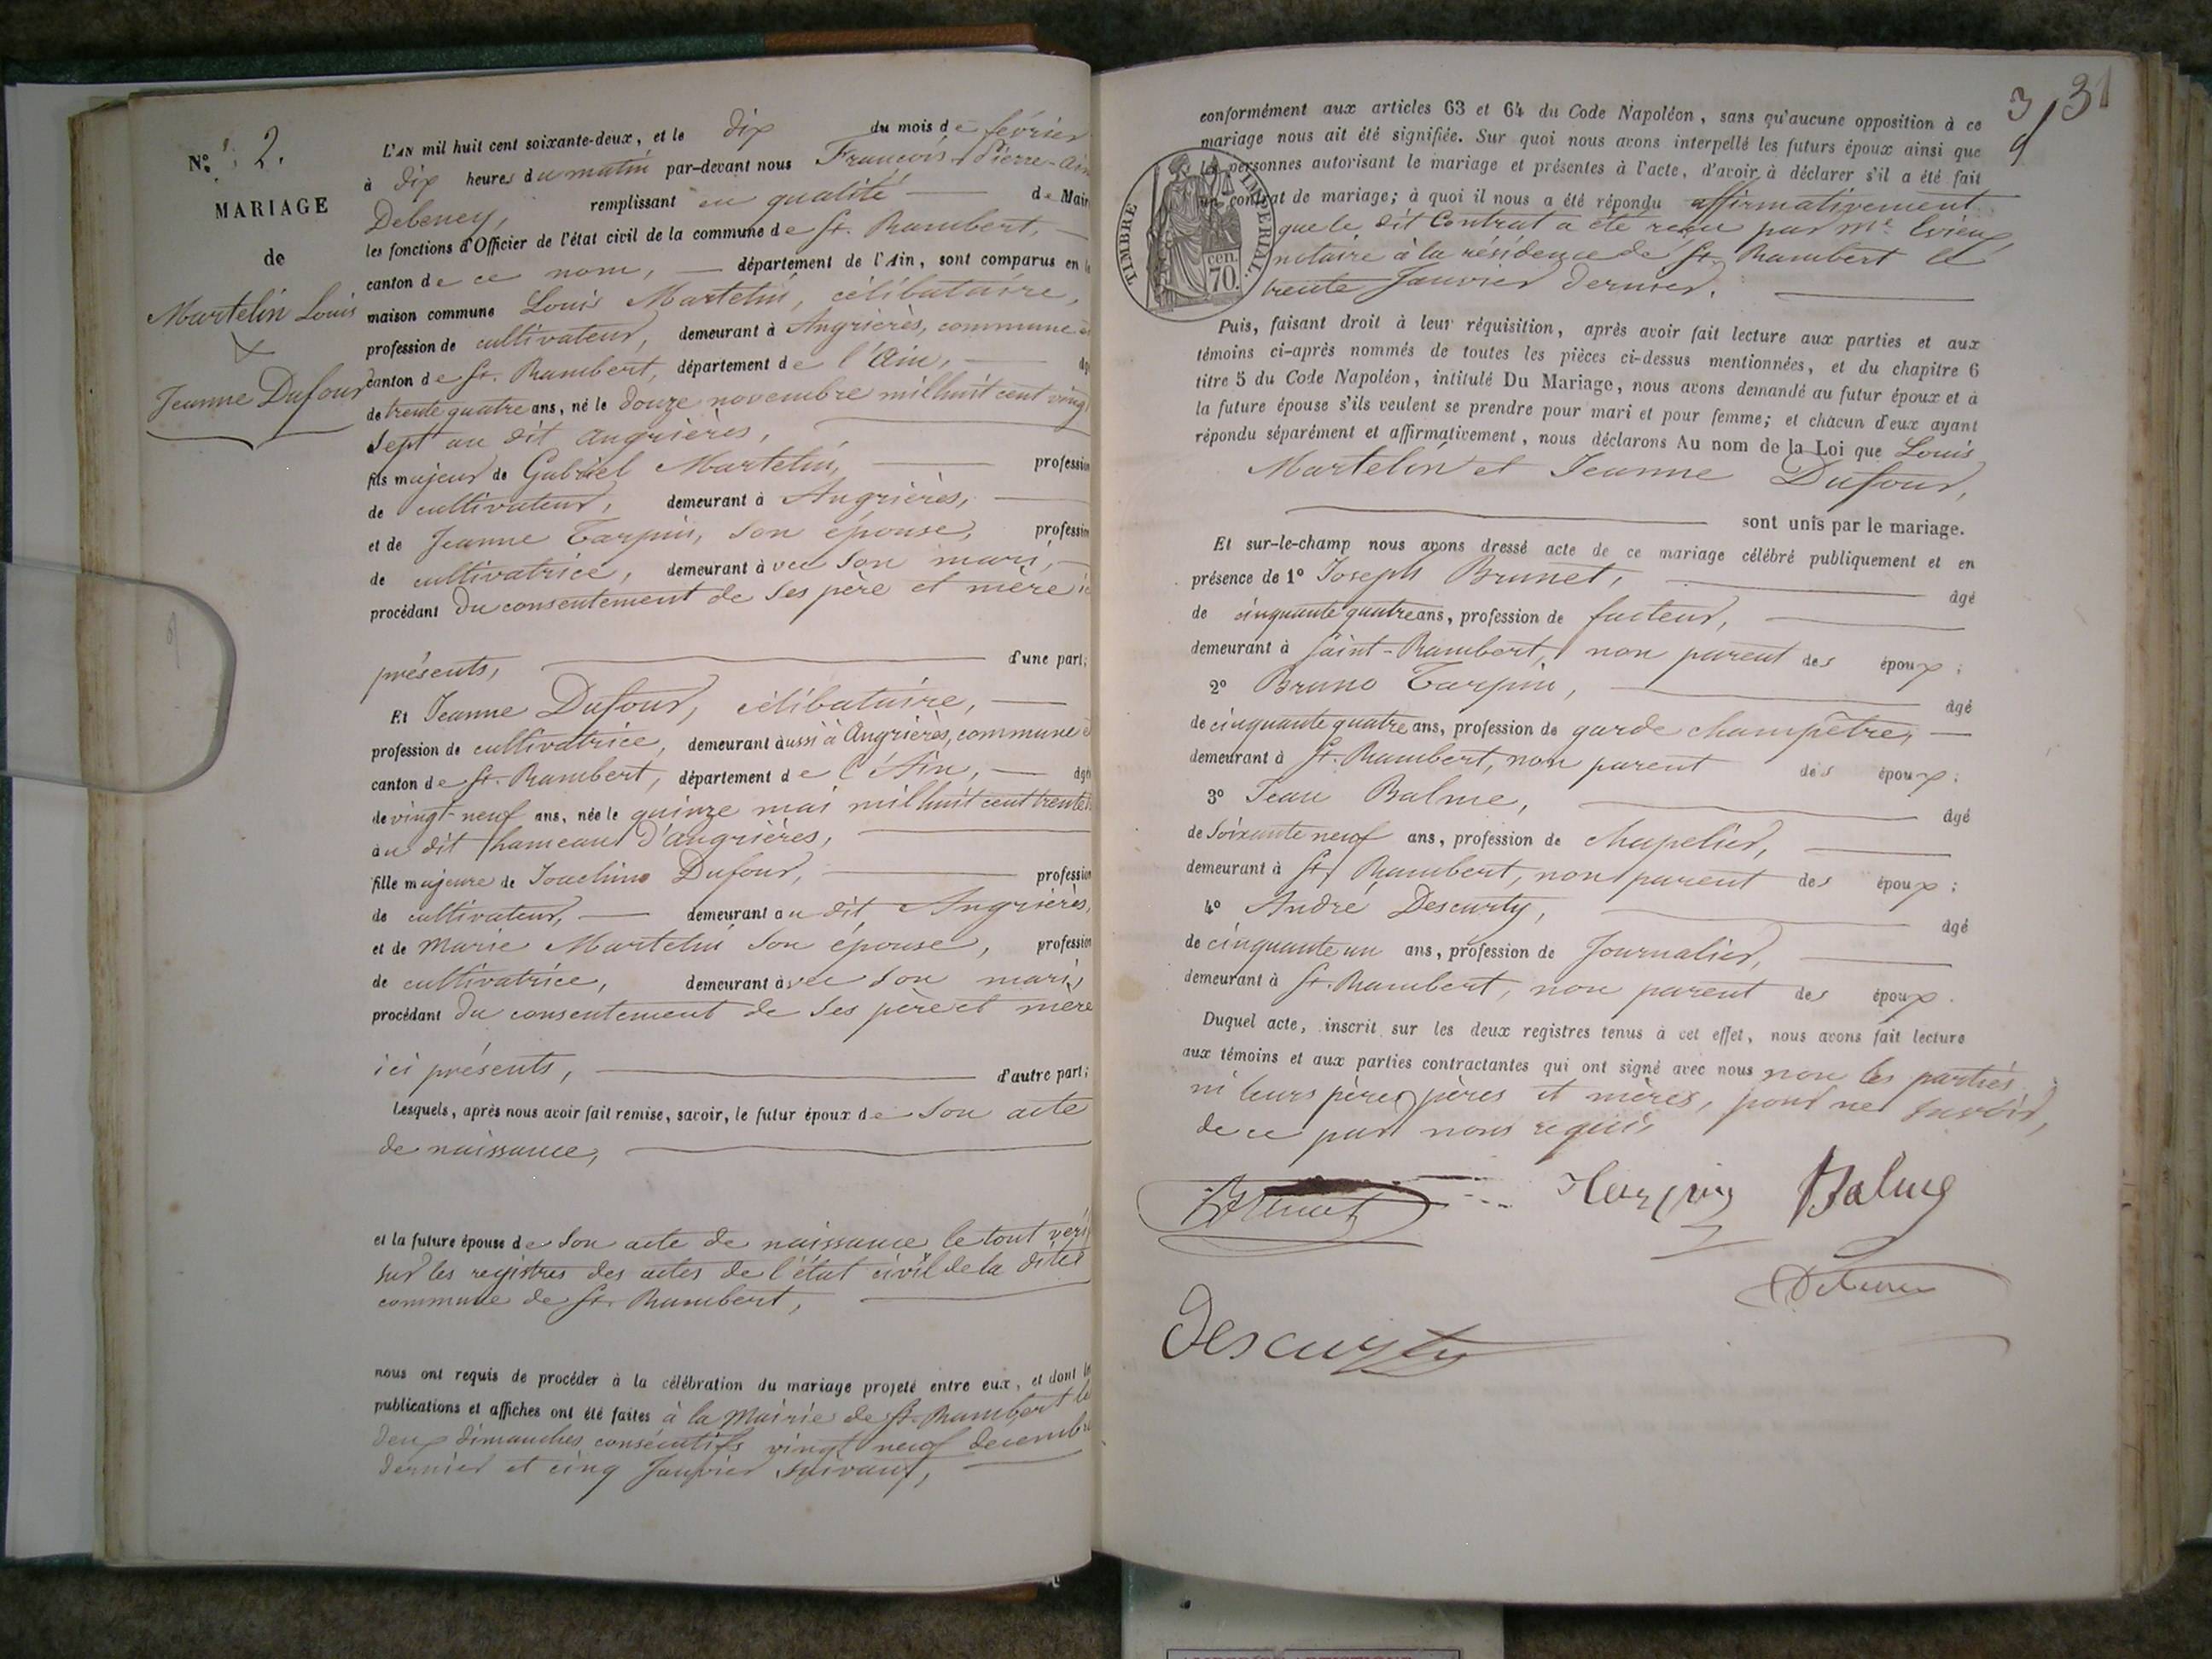 N.o 2.
MARIAGE
de
Martelin Louis
&
Jeanne Dufour
L'AN mil huit cent soixante-deux, et le dix du mois de février
à dix heures du matin par-devant nous François Pierre-Aim
Debeney, remplissant en qualité de Maire
les fonctions d'Officier de l'état civil de la commune de St. Rambert,
canton de ce nom, département de l'Ain, sont comparus en la
maison commune Louis Martelin, célibataire,
profession de cultivateur, demeurant à Angrières, commune et
canton de St. Rambert, département de l'Ain, âgé
de trente quatre ans, né le douze novembre mil huit cent vingt
sept au dit Angrières,
fils majeur de Gabriel Martelin, profession
de cultivateur, demeurant à Angrières,
et de Jeanne Tarpin, son épouse, profession
de cultivatrice, demeurant avec son mari,
procédant du consentement de ses père et mère ici
présents, d'une part;
Et Jeanne Dufour, célibataire,
profession de cultivatrice, demeurant aussi à Angrières, commune et
canton de St. Rambert, département de l'Ain, âgée
de vingt-neuf ans, née le quinze mai mil huit cent trente
au dit hameau d'Angrières,
fille majeure de Joachim Dufour, profession
de cultivateur, demeurant au dit Angrières,
et de Marie Martelin son épouse, profession
de cultivatrice, demeurant avec son mari,
procédant du consentement de ses père et mère
ici présents, d'autre part;
Lesquels, après nous avoir fait remise, savoir, le futur époux de son acte
de naissance,
et la future épouse de son acte de naissance le tout véri
sur les registres des actes de l'état civil de la dite
commune de St. Rambert,
nous ont requis de procéder à la célébration du mariage projeté entre eux, et dont les
publications et affiches ont été faites à la Mairie de St. Rambert les
deux dimanches consécutifs vingt neuf décembre
dernier et cinq Janvier suivant,
3 31
9
conformément aux articles 63 et 64 du Code Napoléon, sans qu'aucune opposition à ce
mariage nous ait été signifiée. Sur quoi nous avons interpellé les futurs époux ainsi que
les personnes autorisant le mariage et présentes à l'acte, d'avoir à déclarer s'il a été fait
un contrat de mariage; à quoi il nous a été répondu affirmativement
que le dit Contrat a été reçu par Me
notaire à la résidence de St. Rambert le
trente Janvier dernier.
TIMBRE IMPERIAL.
70. cen.
Puis, faisant droit à leur réquisition, après avoir fait lecture aux parties et aux
témoins ci-après nommés de toutes les pièces ci-dessus mentionnées, et du chapitre 6
titre 5 du Code Napoléon, intitulé Du Mariage, nous avons demandé au futur époux et à
la future épouse s'ils veulent se prendre pour mari et pour femme; et chacun d'eux ayant
répondu séparément et affirmativement, nous déclarons Au nom de la Loi que Louis
Martelin et Jeanne Dufour,
sont unis par le mariage.
Et sur-le-champ nous avons dressé acte de ce mariage célébré publiquement et en
présence de 1º Joseph Brunet, âgé
de cinquante quatre ans, profession de facteur,
demeurant à Saint-Rambert, non parent des époux;
2º Bruno Tarpin, âgé
de cinquante quatre ans, profession de garde champêtre,
demeurant à St. Rambert, non parent des époux;
3º Jean Balme, âgé
de soixante neuf ans, profession de chapelier,
demeurant à St. Rambert, non parent des époux;
4º André Descurty, âgé
de cinquante un ans, profession de Journalier,
demeurant à St. Rambert, non parent des époux.
Duquel acte, inscrit sur les deux registres tenus à cet effet, nous avons fait lecture
aux témoins et aux parties contractantes qui ont signé avec nous non les parties
ni leurs pères pères et mères, pour ne savoir,
de ce par nous requis
Brunet Tarpin Balme
Debeney
Descurty